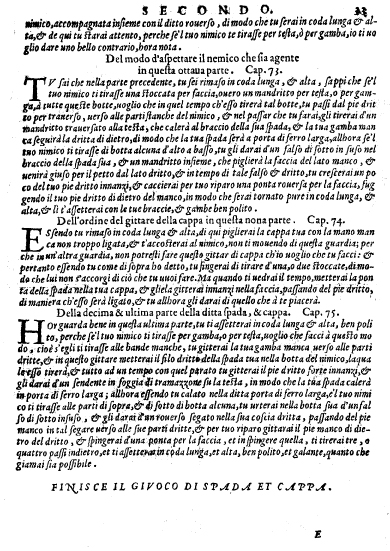 SECONDO. 23
nimico, accompagnata insieme con il ditto rouerso, di modo che tu serai in coda lunga & al-
ta, & de qui tu starai attento, perche se'l tuo nimico te tirasse per testa, ò per gamba, io ti uo
glio dare uno bello contrario, hora nota.
Del modo d'aspettare il nemico che sia agente
in questa ottaua parte. Cap. 73.
TV sai che nella parte precedente, tu sei rimaso in coda lunga, & alta, sappi che se'l
tuo nimico ti tirasse una stoccata per faccia, ouero un mandritto per testa, o per gam-
ba, à tutte queste botte, uoglio che in quel tempo ch'esso tirerà tal botte, tu passi dal pie drit
to per trauerso, uerso alle parti stanche del nimico, & nel passar che tu farai, gli tirerai d'un
mandritto trauersato alla testa, che calerà al braccio della sua spada, & la tua gamba man
ca seguirà la dritta di dietro, di modo che la tua spada serà a porta di ferro larga, allhora se'l
tuo nimico ti tirasse di botta alcuna d'alto a basso, tu gli darai d'un falso di sotto in suso nel
braccio della spada sua, & un mandritto insieme, che piglierà la faccia del lato manco, &
uenirà giuso per il petto dal lato dritto, & in tempo di tale falso & dritto, tu crescerai un po
co del tuo pie dritto innanzi, & caccierai per tuo riparo una ponta rouersa per la faccia, fug
gendo il tuo pie dritto di dietro del manco, in modo che serai tornato pure in coda lunga, &
alta, & lì t'assetterai con le tue braccie, & gambe ben polito.
Dell'ordine del gittare della cappa in questa nona parte. Cap. 74.
ESsendo tu rimaso in coda lunga & alta, di qui piglierai la cappa tua con la mano man
ca non troppo ligata, & t'accosterai al nimico, non ti mouendo di questa guardia; per
che in un'altra guardia, non potresti fare questo gittar di cappa ch'io uoglio che tu facci: &
pertanto essendo tu come di sopra ho detto, tu fingerai di tirare d'una, o due stoccate, di mo-
do che lui non s'accorgi di ciò che tu uuoi fare. Ma quando ti uedrai il tempo, metterai la pon
ta della spada nella tua cappa, & gliela gitterai innanzi nella faccia, passando del pie dritto,
di maniera ch'esso serà ligato, & tu allhora gli darai di quello che à te piacerà.
Della decima & ultima parte della ditta spada, & cappa. Cap. 75.
HOr guarda bene in questa ultima parte, tu ti assetterai in coda lunga & alta, ben poli
to, perche se'l tuo nimico ti tirasse per gamba, o per testa, uoglio che facci à questo mo
do, cioè s'egli ti tirasse alle bande manche, tu gitterai la tua gamba manca uerso alle parti
dritte, & in questo gittare metterai il filo dritto della spada tua nella botta del nimico, laqua
le esso tirerà, & tutto ad un tempo con quel parato tu gitterai il pie dritto forte innanzi, &
gli darai d'un fendente in foggia di tramazzone su la testa, in modo che la tua spada calerà
in porta di ferro larga; allhora essendo tu calato nella ditta porta di ferro larga, e'l tuo nimi
co ti tirasse alle parti di sopra, & di sotto di botta alcuna, tu urterai nella botta sua d'un fal
so di sotto in suso, & gli darai d'un rouerso segato nella sua coscia dritta, passando del pie
manco in tal segare uerso alle sue parti dritte, & per tuo riparo gittarai il pie manco di die-
tro del dritto, & spingerai d'una ponta per la faccia, et in spingere quella, ti tirerai tre, o
quattro passi indietro, et ti assetterai in coda lunga, et alta, ben polito, et galante, quanto che
giamai sia possibile.
FINISCE IL GIVOCO DI SPADA ET CAPPA.
E